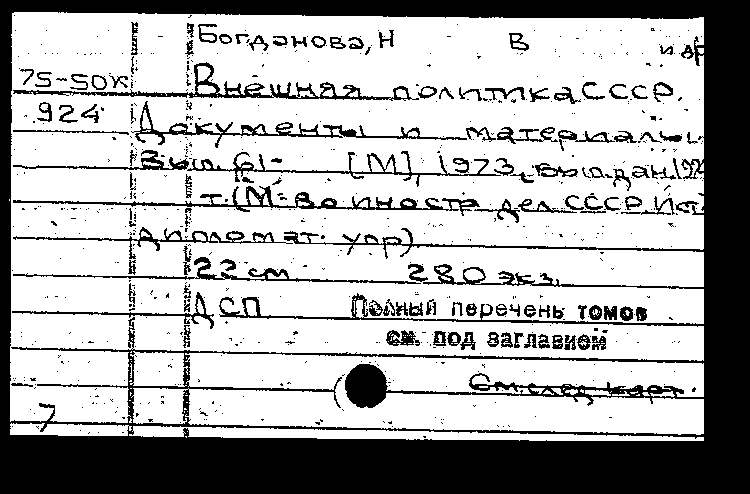 Богданова, Н В и др
75-50к Внешняя политика СССР.
924 Документы и материалы.
Вып. 61- [М], 1973, выл дан. 192
т. (М-во иностр дел СССР. Ист.
дипломат. упр)
22 см 280 экз.
ДСП Полный перечень томов
см. под заглавием
См. след карт.
7